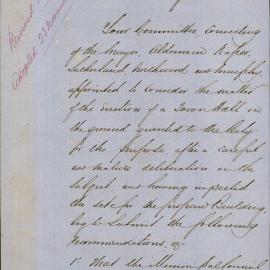 Your Committee, Consisting
of the Mayor, Aldermen Raper,
Sutherland, Northwood and Murphy,
appointed to Consider the matter
of the Erection of a Town Hall on
the ground granted to the City
for the purpose after a careful
and mature deliberation on the
subject, and having inspected
the site for the proposed Building,
beg to Submit the following
recommendations, vz-
1st That the Municipal Council
Received
Adopted 23